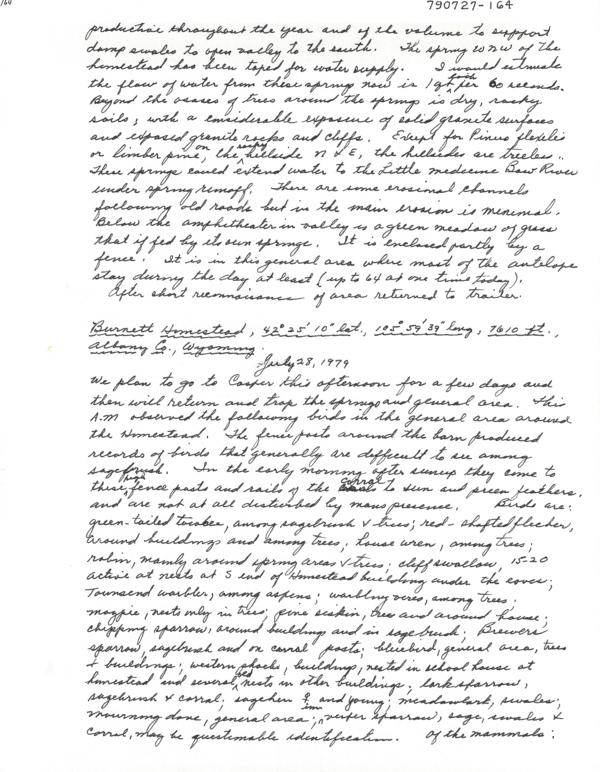 164
790727-164
productive throughout the year and of the volume to support
damp swales to open valley to the south. The spring WNW of the
homestead has been taped for water supply. I would estimate
the flow of water from these springs now is 1 qt. each per 60 seconds.
Beyond the oases of trees around the springs is dry, rocky
soils, with a considerable exposure of solid granite surfaces
and exposed granite rocks and cliffs. Except for Pinus flexilis
or limber pine, on the rocky hillside N & E, the hillsides are treeless.
These springs could extend water to the Little Medicine Bow River
under spring runoff. There are some erosional channels
following old roads but in the main erosion is minimal.
Below the amphitheater in valley is a green meadow of grass
that if fed by its own springs. It is enclosed partly by a
fence. It is in this general area where most of the antelope
stay during the day at least (up to 64 at one time today).
After short reconnaisance of area returned to trailer.
Burnett Homestead, 42° 25' 10" lat., 105° 59' 39" long, 7610 ft.,
Albany Co., Wyoming.
July 28, 1979
We plan to go to Casper this afternoon for a few days and
then will return and trap the springs and general area. This
A.M observed the following birds in the general area around
the Homestead. The fence posts around the barn produced
records of birds that generally are difficult to see among
sagebrush. In the early morning after sunup they come to
these high fence posts and rails of the corral to sun and preen feathers,
and are not at all disturbed by mans presence. Birds are:
green-tailed towhee, among sagebrush & trees; red-shafted flicker,
around buildings and among trees; house wren, among trees;
robin, mainly around spring areas & trees; cliff swallow, 15-20
active at nests at S end of Homestead building under the eaves;
Townsend warbler, among aspens; warbling vireo, among trees.
magpie, nests only in trees; pine siskin, trees and around house;
chipping sparrow, around building and in sagebrush; Brewers
sparrow, sagebrush and on corral posts; bluebird, general area, trees
& buildings; western phoebe, building, nested in school house at
homestead and several old nests in other buildings; lark sparrow,
sagebrush & corral; sagehen ♀ and young; meadowlark, swales;
mourning dove, general area; vesper sparrow, sage, swales &
corral, may be questionable identification. Of the mammals: